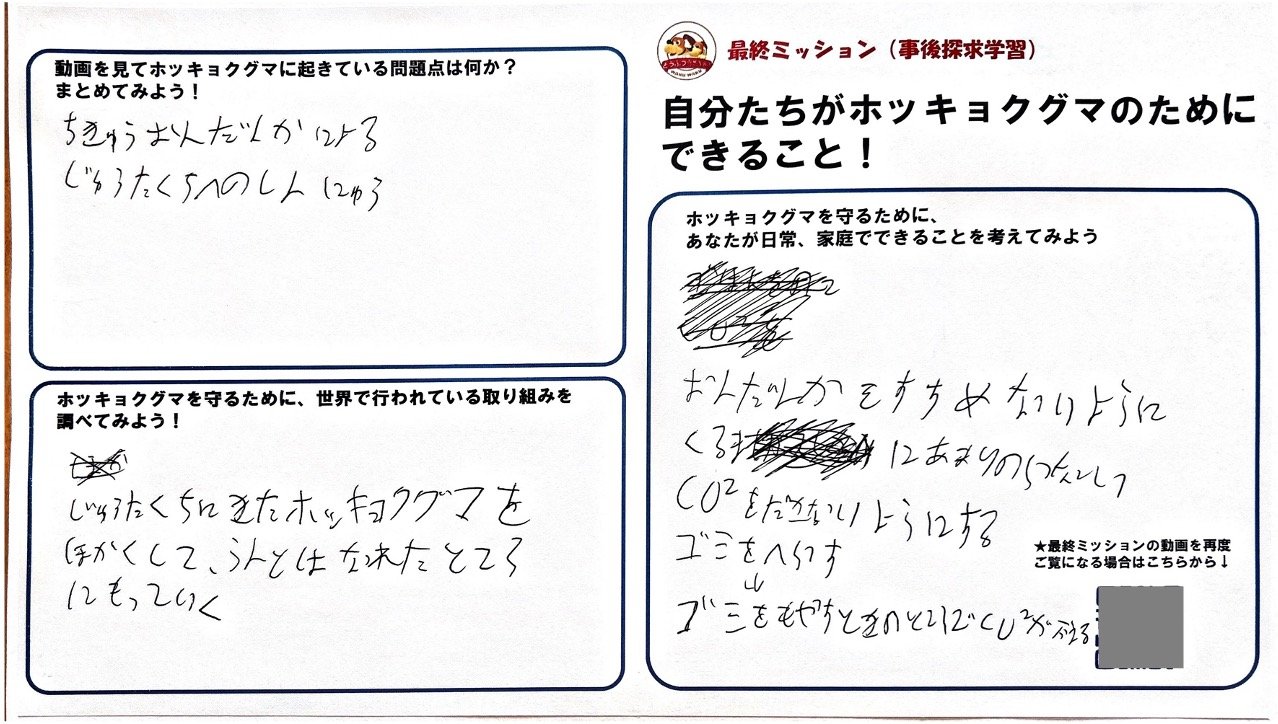 動画を見てホッキョクグマに起きている問題点は何か？
まとめてみよう！
ちきゅうおんだんかによる
じゅうたくちへのしんにゅう
ホッキョクグマを守るために、世界で行われている取り組みを
調べてみよう！
じゅうたくちにきたホッキョクグマを
ほかくして、うんとはなれたところ
にもっていく
最終ミッション（事後探求学習）
自分たちがホッキョクグマのために
できること！
ホッキョクグマを守るために、
あなたが日常、家庭でできることを考えてみよう
おんだんかをすすめないように
くるま にあまりのらないで
CO²をださないようにする
ゴミをへらす
↓
ゴミをもやすときのとりびCO²が
★最終ミッションの動画を再度
ご覧になる場合はこちらから↓